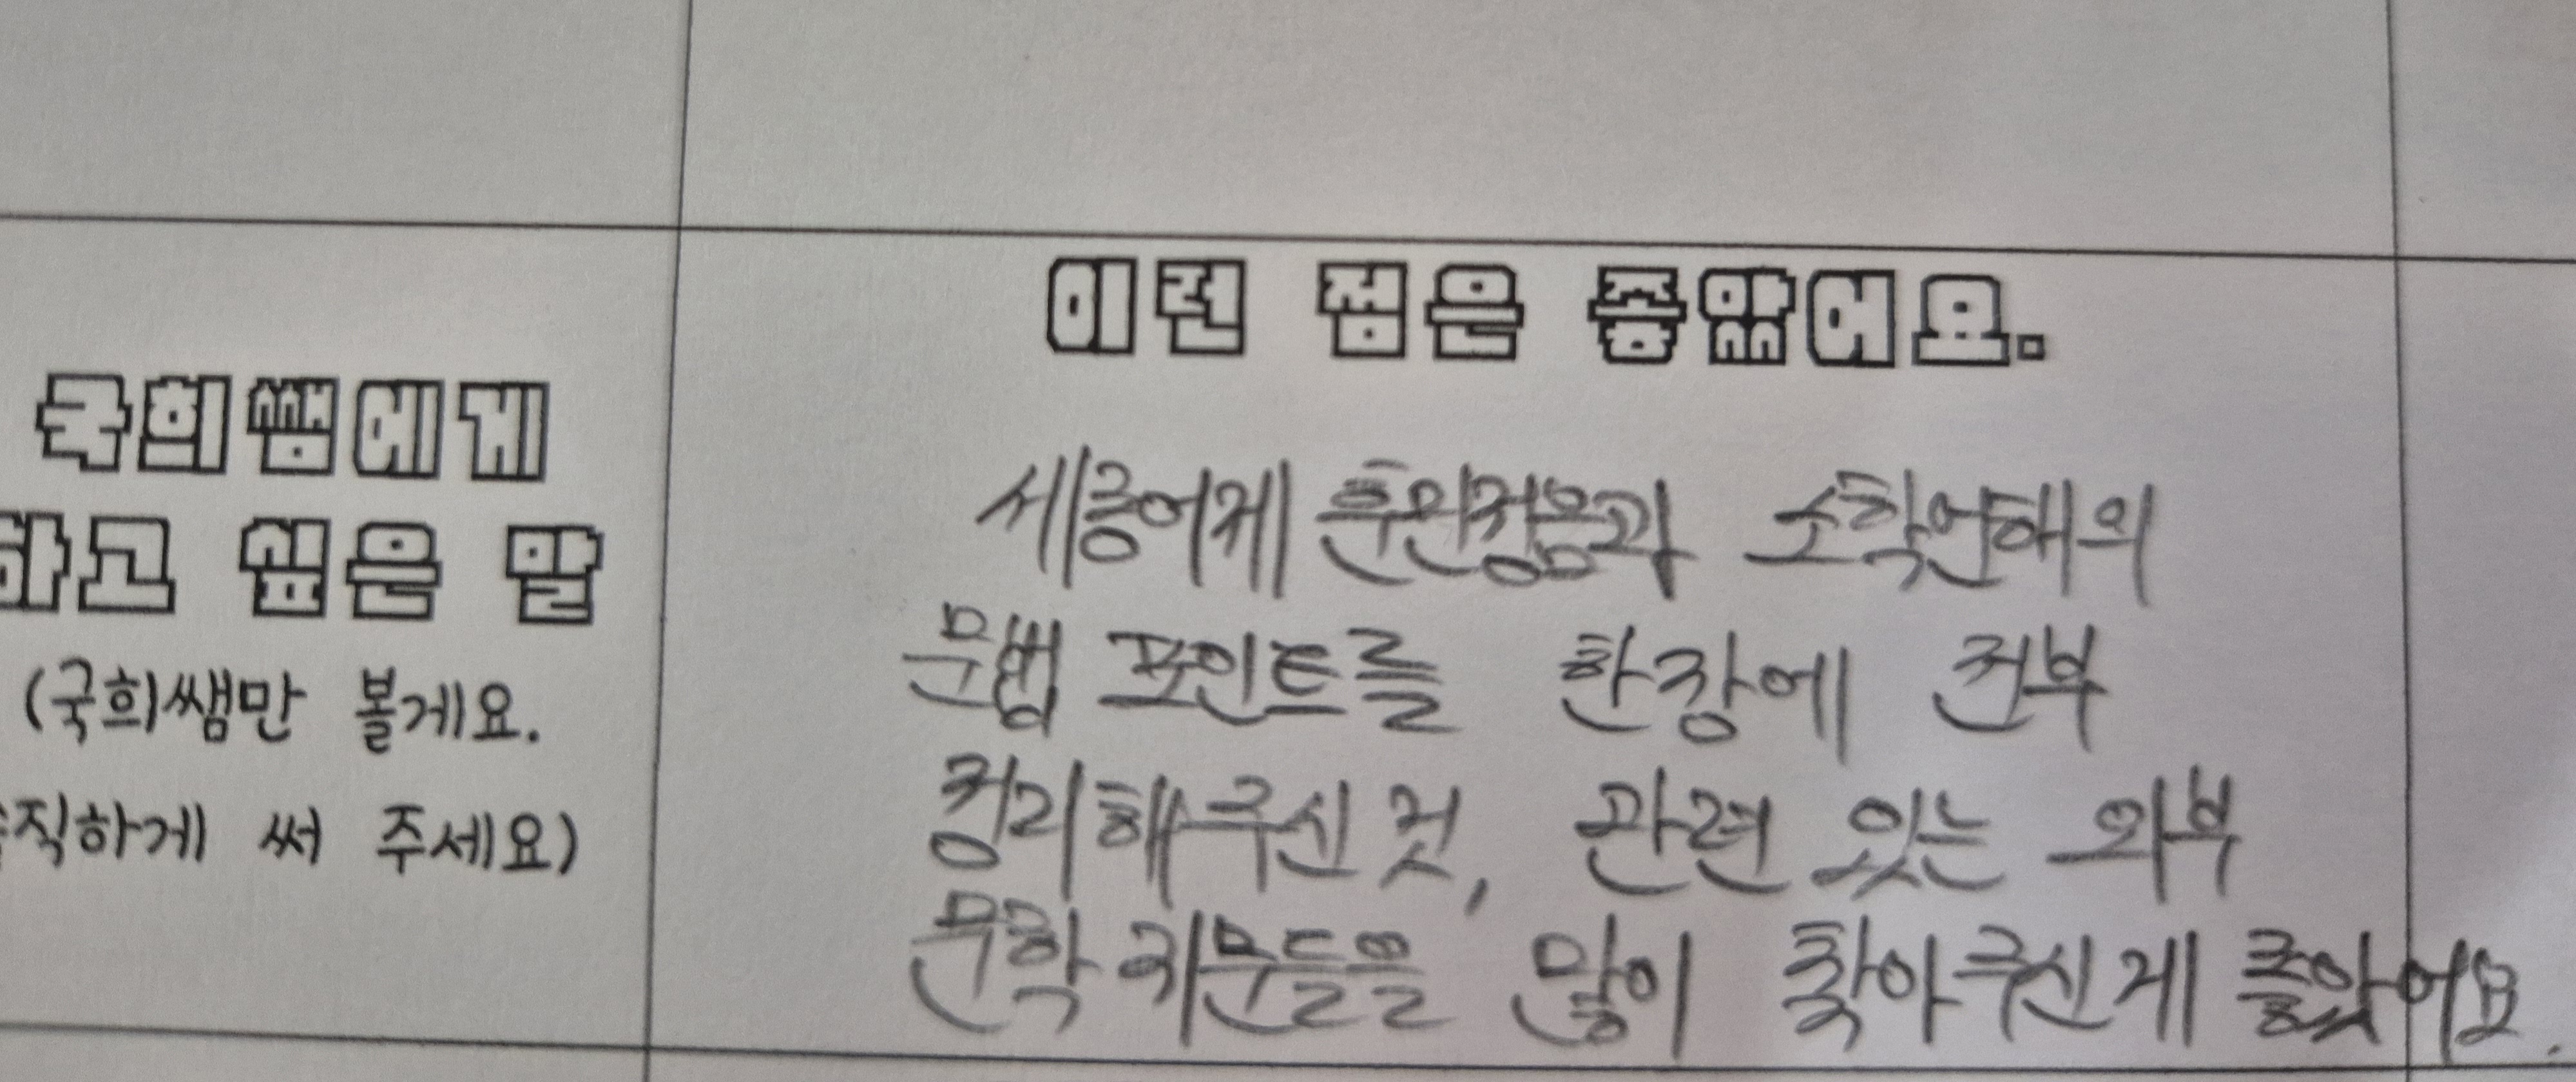 이런 점은 좋았어요.
국희쌤에게
하고 싶은 말
(국희쌤만 볼게요.
솔직하게 써 주세요)
세종어제 훈민정음과 소학언해의
문법 포인트를 한장에 전부
정리해주신 것, 관련 있는 외부
문학 지문들을 많이 찾아주신게 좋았어요.